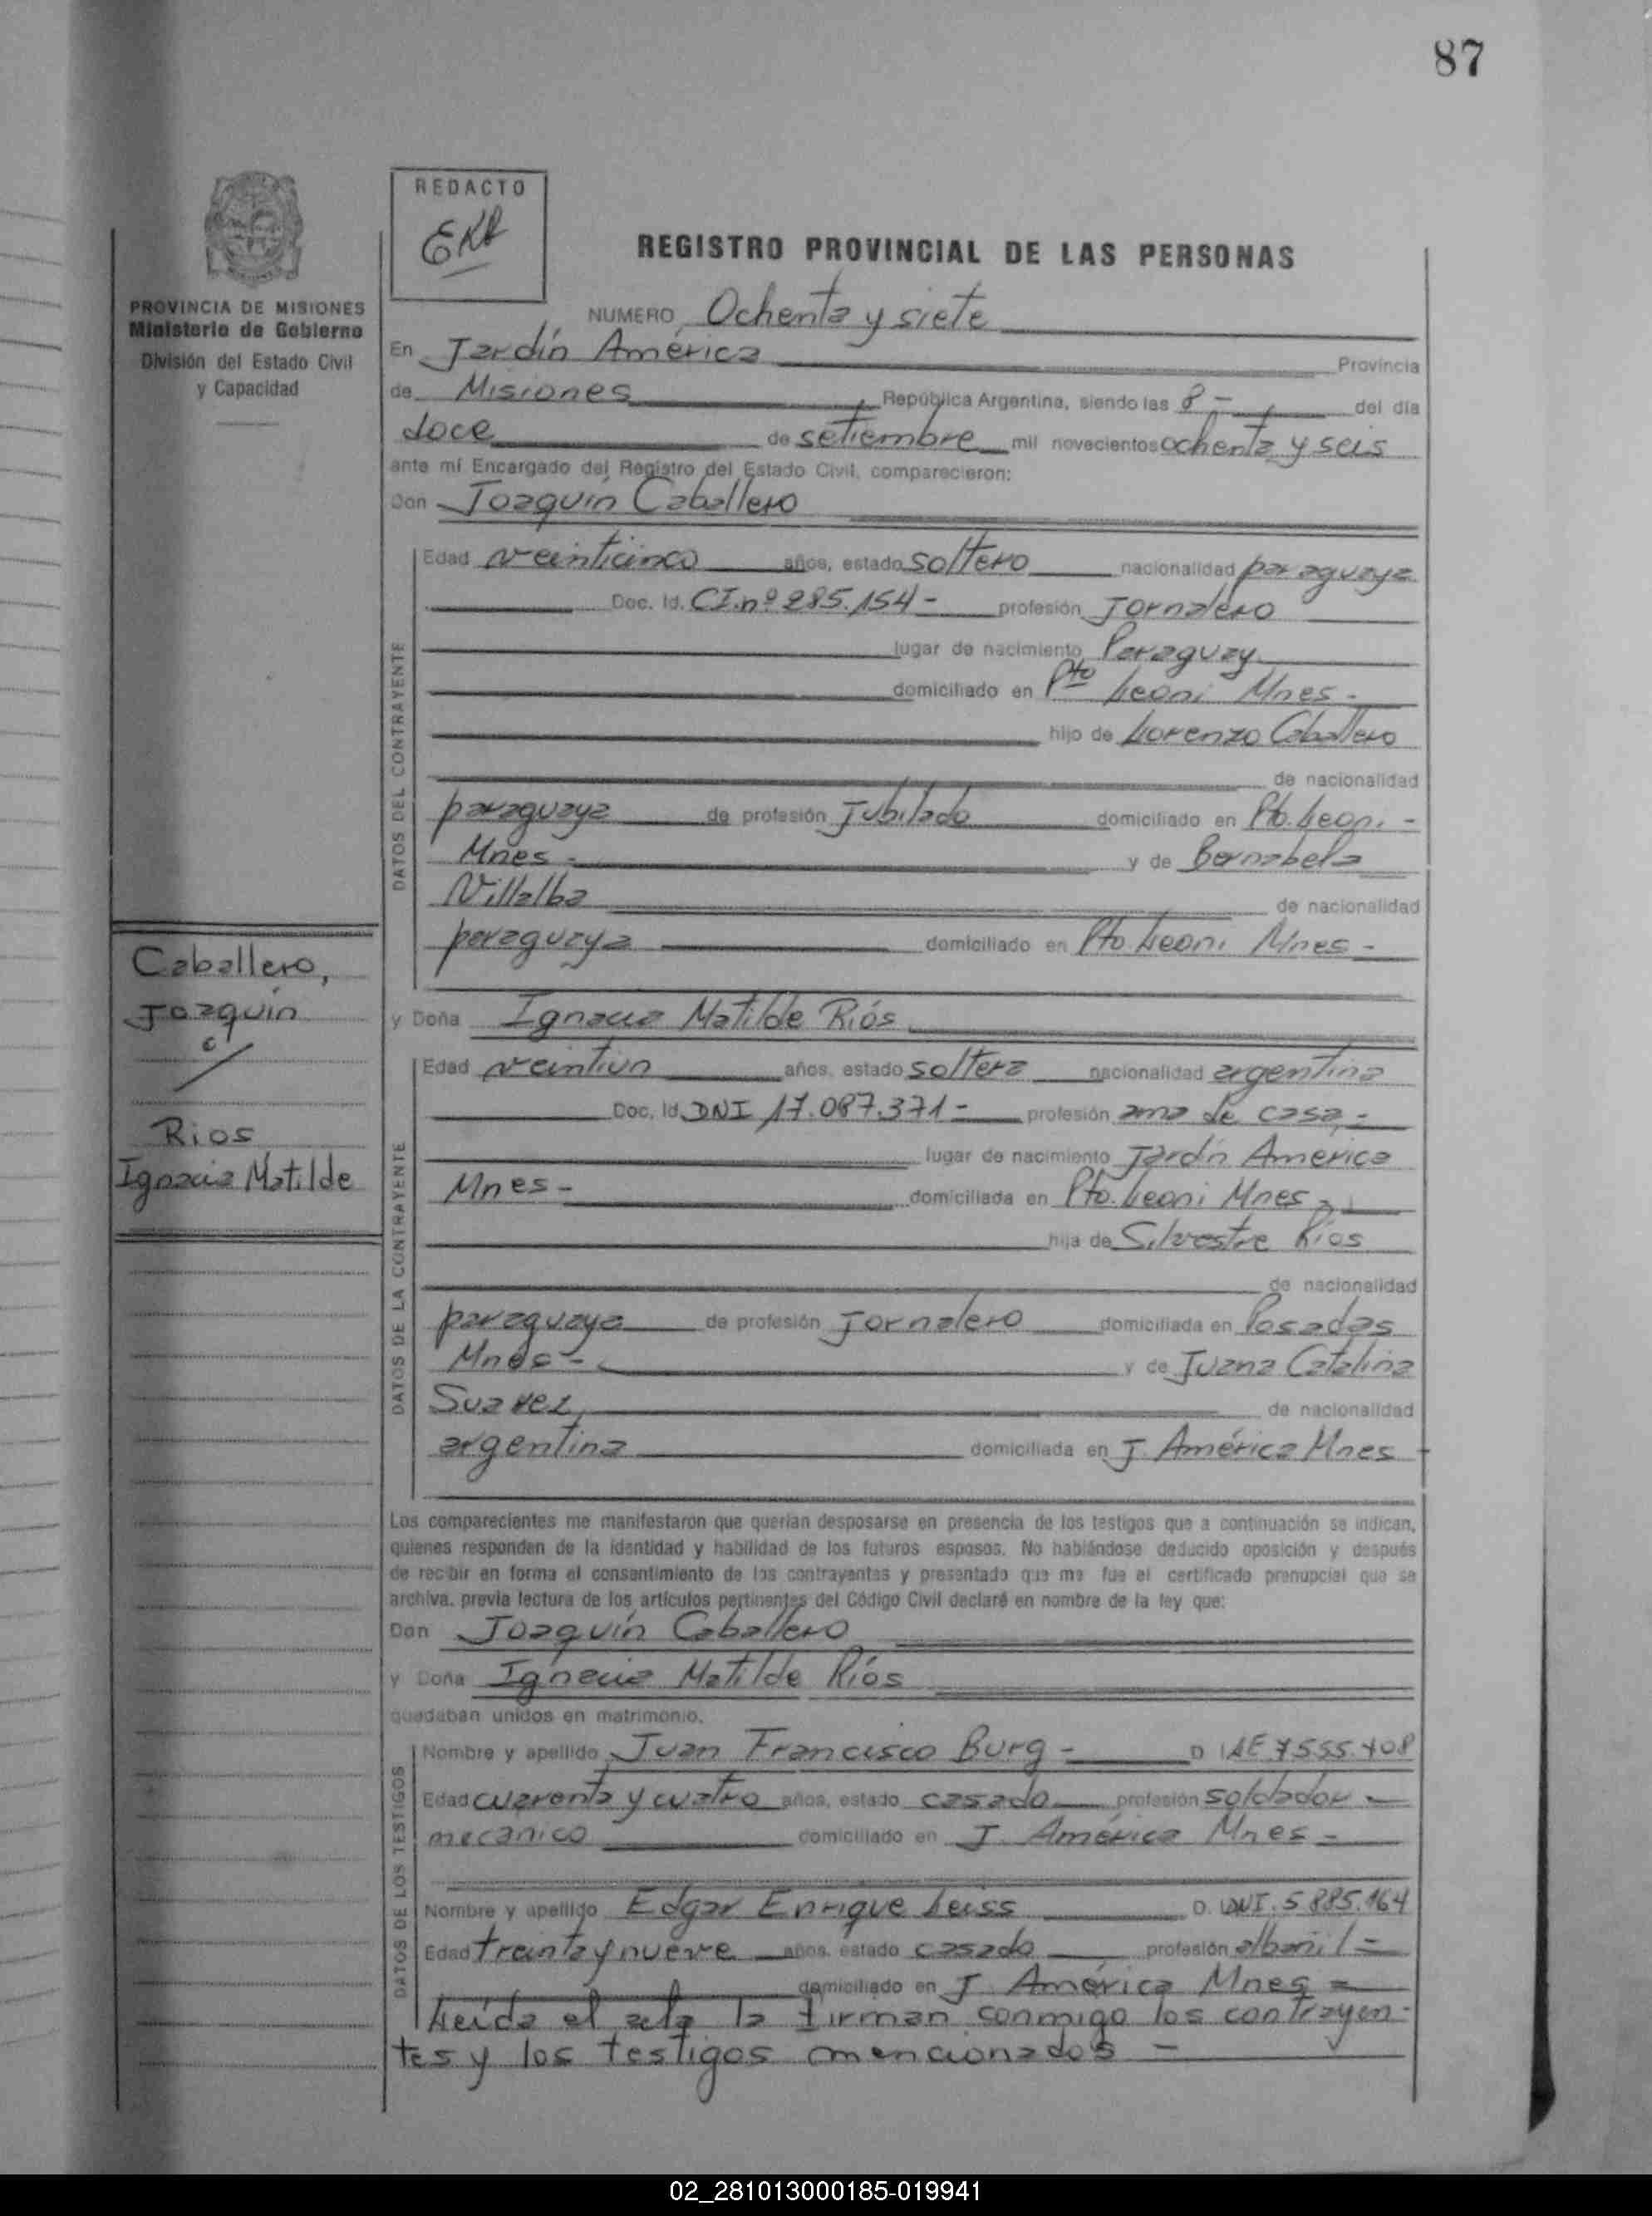 87
REDACTO
REGISTRO PROVINCIAL DE LAS PERSONAS
PROVINCIA DE MISIONES
Ministerio de Gobierno
División del Estado Civil
y Capacidad
NUMERO Ochenta y siete
En Jardín América Provincia
de Misiones República Argentina, siendo las 8,- del día
doce de setiembre mil novecientos ochenta y seis
ante mí Encargado del Registro del Estado Civil, comparecieron:
Don Joaquín Caballero
DATOS DEL CONTRAYENTE
Edad veinticinco años, estado soltero nacionalidad paraguaya
Doc. Id. CI.nº 285.154- profesión Jornalero
lugar de nacimiento Paraguay
domiciliado en Pto Leoni Mnes-
hijo de Lorenzo Caballero
de nacionalidad
paraguaya de profesión Jubilado domiciliado en Pto. Leoni-
Mnes- y de Bernabela
Villalba de nacionalidad
paraguaya domiciliado en Pto. Leoni Mnes-
Caballero,
Joaquín
c/
Rios
Ignacia Matilde
y Doña Ignacia Matilde Ríos
DATOS DE LA CONTRAYENTE
Edad veintiun años, estado soltera nacionalidad argentina
Doc. Id. DNI 17.087.371- profesión ama de casa,-
lugar de nacimiento Jardín America
Mnes- domiciliada en Pto. Leoni Mnes-
hija de Silvestre Ríos
de nacionalidad
paraguaya de profesión Jornalero domiciliada en Posadas
Mnes- y de Juana Catalina
Suarez, de nacionalidad
argentina domiciliada en J. América Mnes
Los comparecientes me manifestaron que querían desposarse en presencia de los testigos que a continuación se indican,
quienes responden de la identidad y habilidad de los futuros esposos. No habiéndose deducido oposición y después
de recibir en forma el consentimiento de los contrayentes y presentado que me fue el certificado prenupcial que se
archiva, previa lectura de los artículos pertinentes del Código Civil declaré en nombre de la ley que:
Don Joaquín Caballero
y Doña Ignacia Matilde Ríos
quedaban unidos en matrimonio.
DATOS DE LOS TESTIGOS
Nombre y apellido Juan Francisco Burg- D I LE 7555.408
Edad cuarenta y cuatro años, estado casado profesión soldador-
mecanico domiciliado en J. América Mnes-
Nombre y apellido Edgar Enrique Leiss D. I. DNI. 5.885.164
Edad treinta y nueve años, estado casado profesión albañil-
domiciliado en J. América Mnes=
Leída el acta la firman conmigo los contrayen-
tes y los testigos mencionados-
02_281013000185-019941